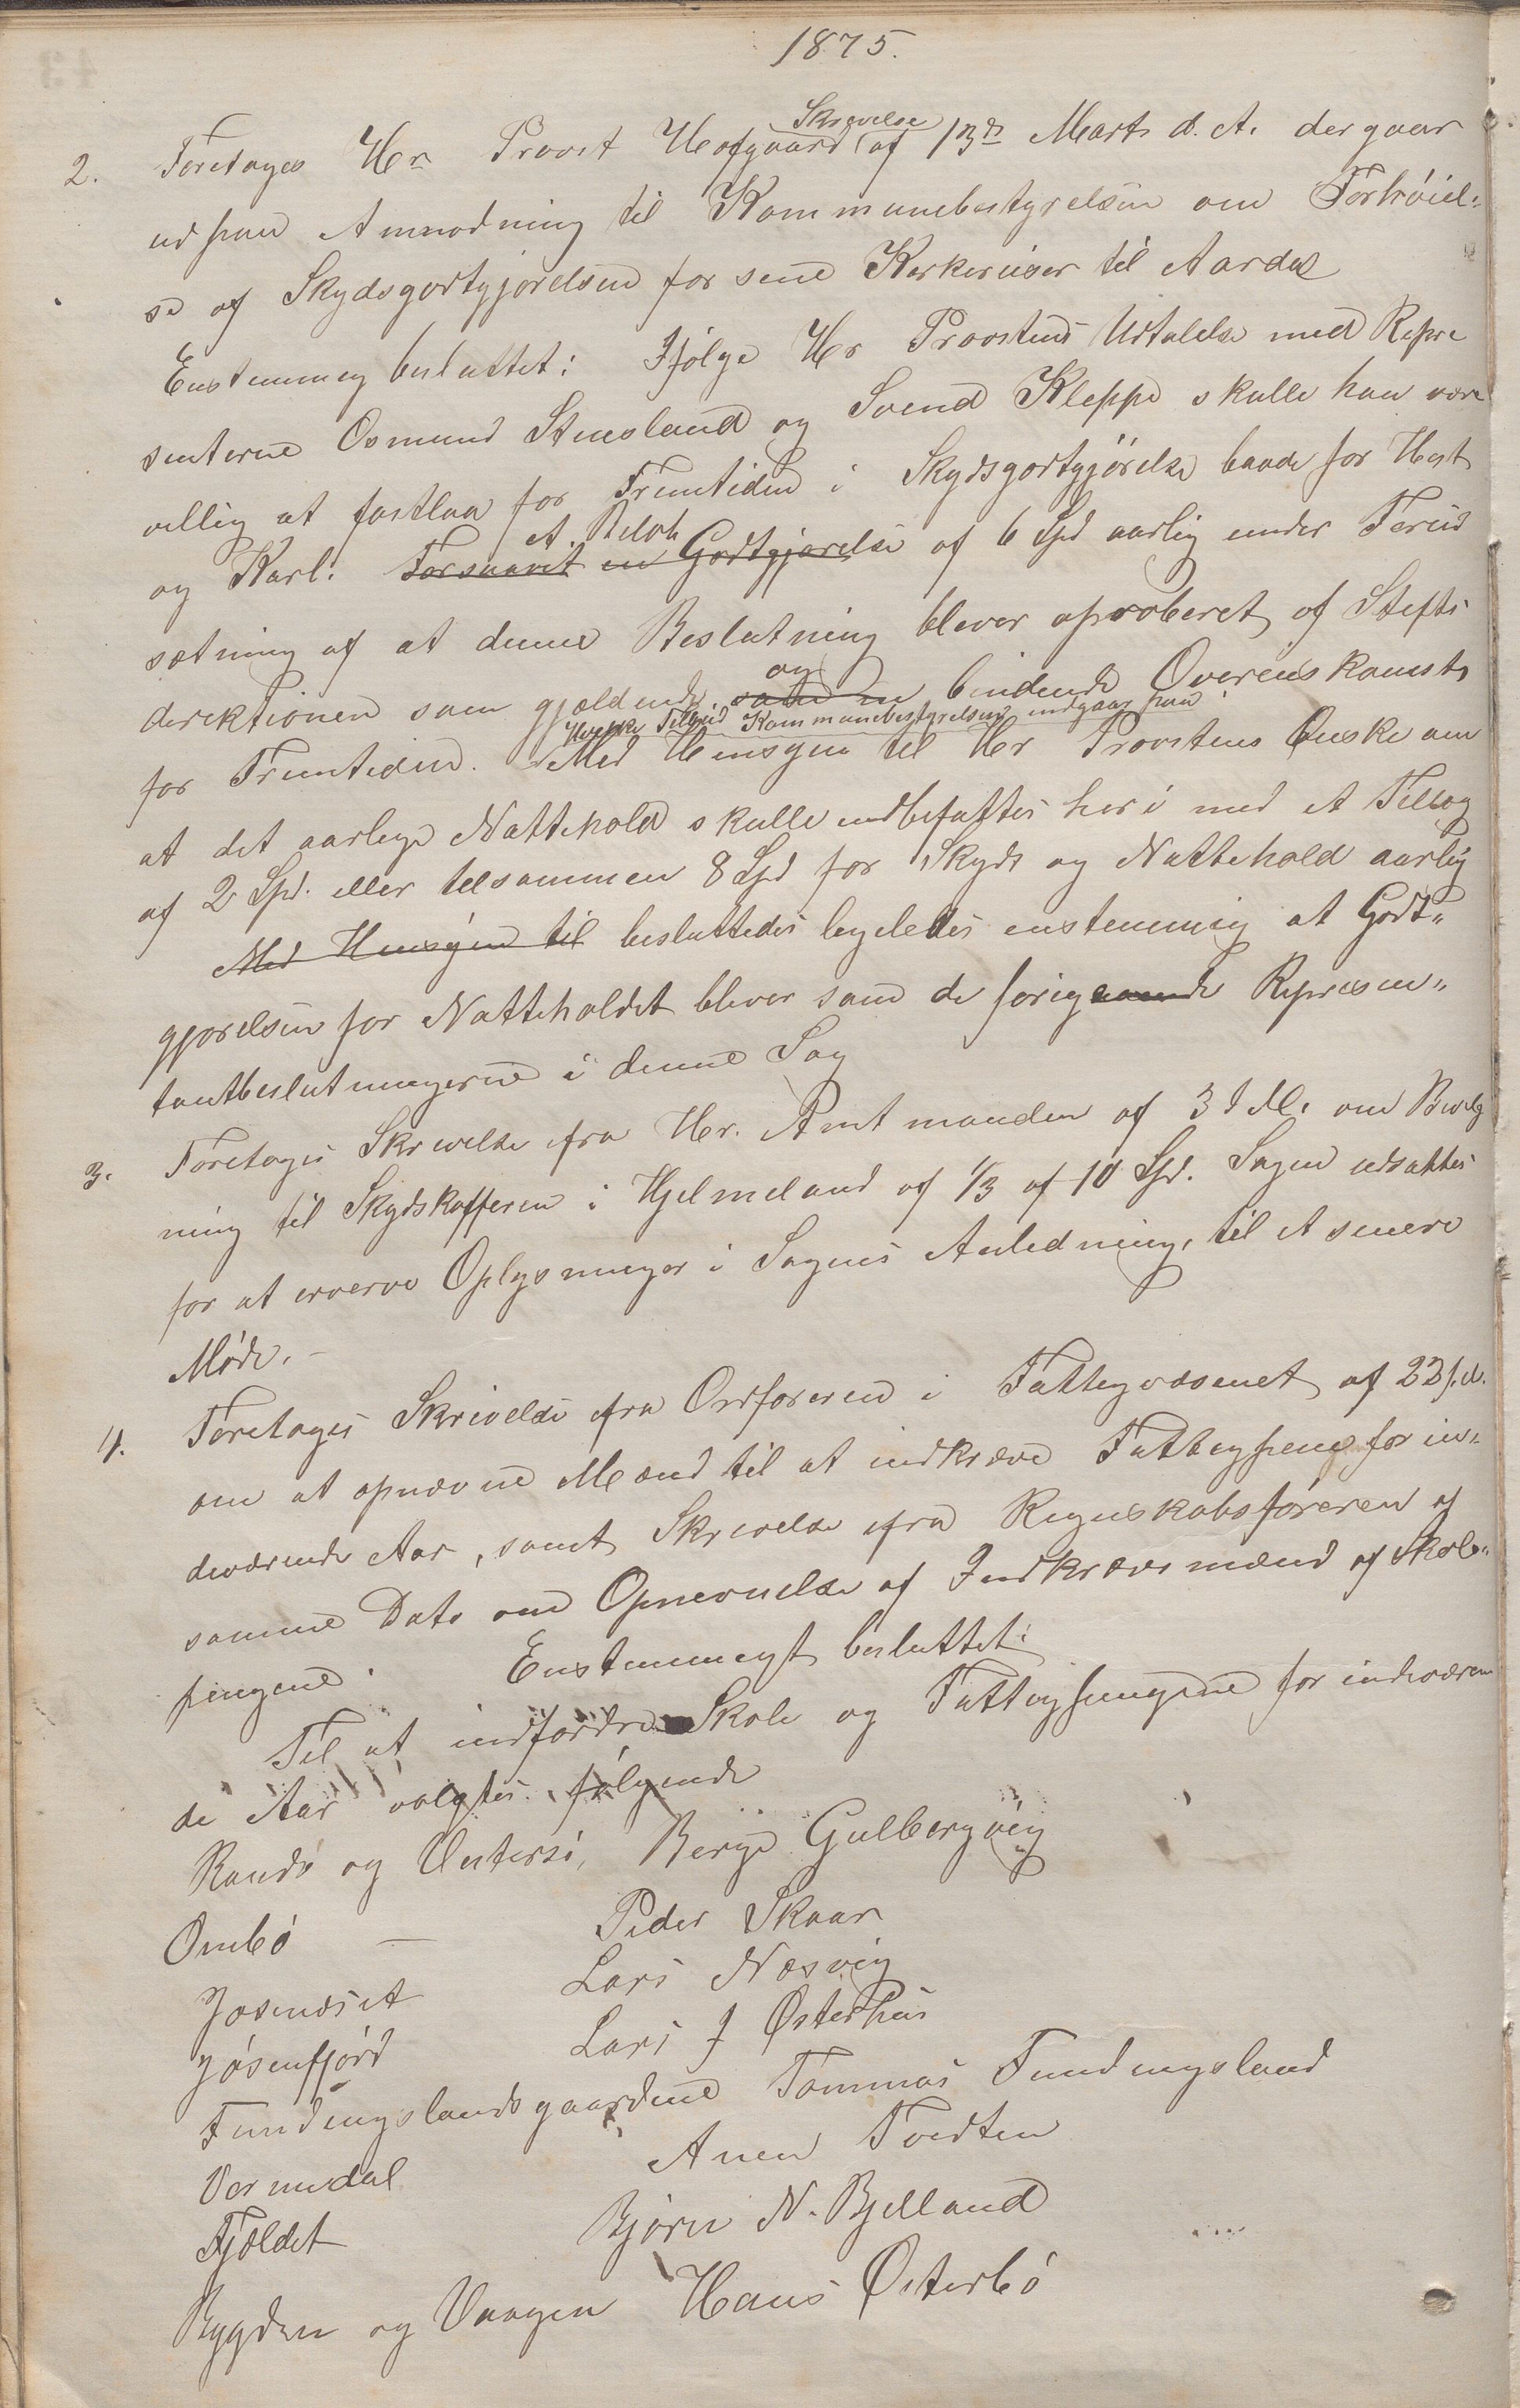 1875.
2. Foretages Hr Provst Hofgaard Skrivelse af 13de Marts d. A. der gaar
ud paa Anmodning til Kommunebestyrelsen om Forhöiel-
se af Skydsgodtgjörelsen for sene Kerkereiser til Aardal
Enstemmig besluttet: Ifölge Hr Provstens Udtalelse med Repre
senterne Osmund Stensland og Svend Kleppe skulle han være
villig at fastlaa for Fremtiden i Skydsgodtgjörelse baade for Hest
og Karl: Forsaavit en Godtgjörelse et Beløb af 6 Spd aarlig under Forud
sætning af at denne Beslutning blever aproberet af Stifts
direktionen som gjeldende som en og bindende Overenskomst
for Fremtiden. Hvilke Tilbud Kommunebestyrelsen indgaar paa
Med Hensyn til Hr Provstens Önske om
at det aarlige Nattehold skulle indbefattes heri med et Tillæg
af 2 Spd. eller tilsammen 8 Spd for Skyds og Nattehold aarlig
Med Hensyn til besluttedes ligeledes enstemmig at Godt-
gjörelsen for Natteholdet blever som de forige Represen-
tantbeslutningerne i denne Sag
3. Foretages Skrivelse fra Hr. Amtmanden af 3 d. M. om Bevilg
ning til Skydskafferen i Hjelmeland af 1/3 af 10 Spd. Sagen udsattes
for at erverve Oplysninger i Sagens Anledning, til et senere
Möde. -
4. Foretages Skrivelse fra Ordföreren i Fattigvæsenet af 22 f. M.
om at opnævne Mænd til at indkræve Fattigpenge for in-
deværende Aar, samt Skrivelse fra Regnskabsföreren af
samme Dato om Opnevnelse af Indkrævsmænd af Skole-
pengene. Enstemmigt besluttet:
Til at indfordre Skole og Fattigpengene for indeværen
de Aar valgtes fölgende
Randö og Vestersö, Berge Gulbergvig
Ombö - Peder Skaar
Jøsenæset Lars Næsvig
Jösenfjörd Lars J Østerhus
Fundingslandsgaardene Tommas Fundingsland
Vormedal Anen Tvedten
Fjældet Björn N. Bjelland
Bygden og Vaagen Hans Østerbö